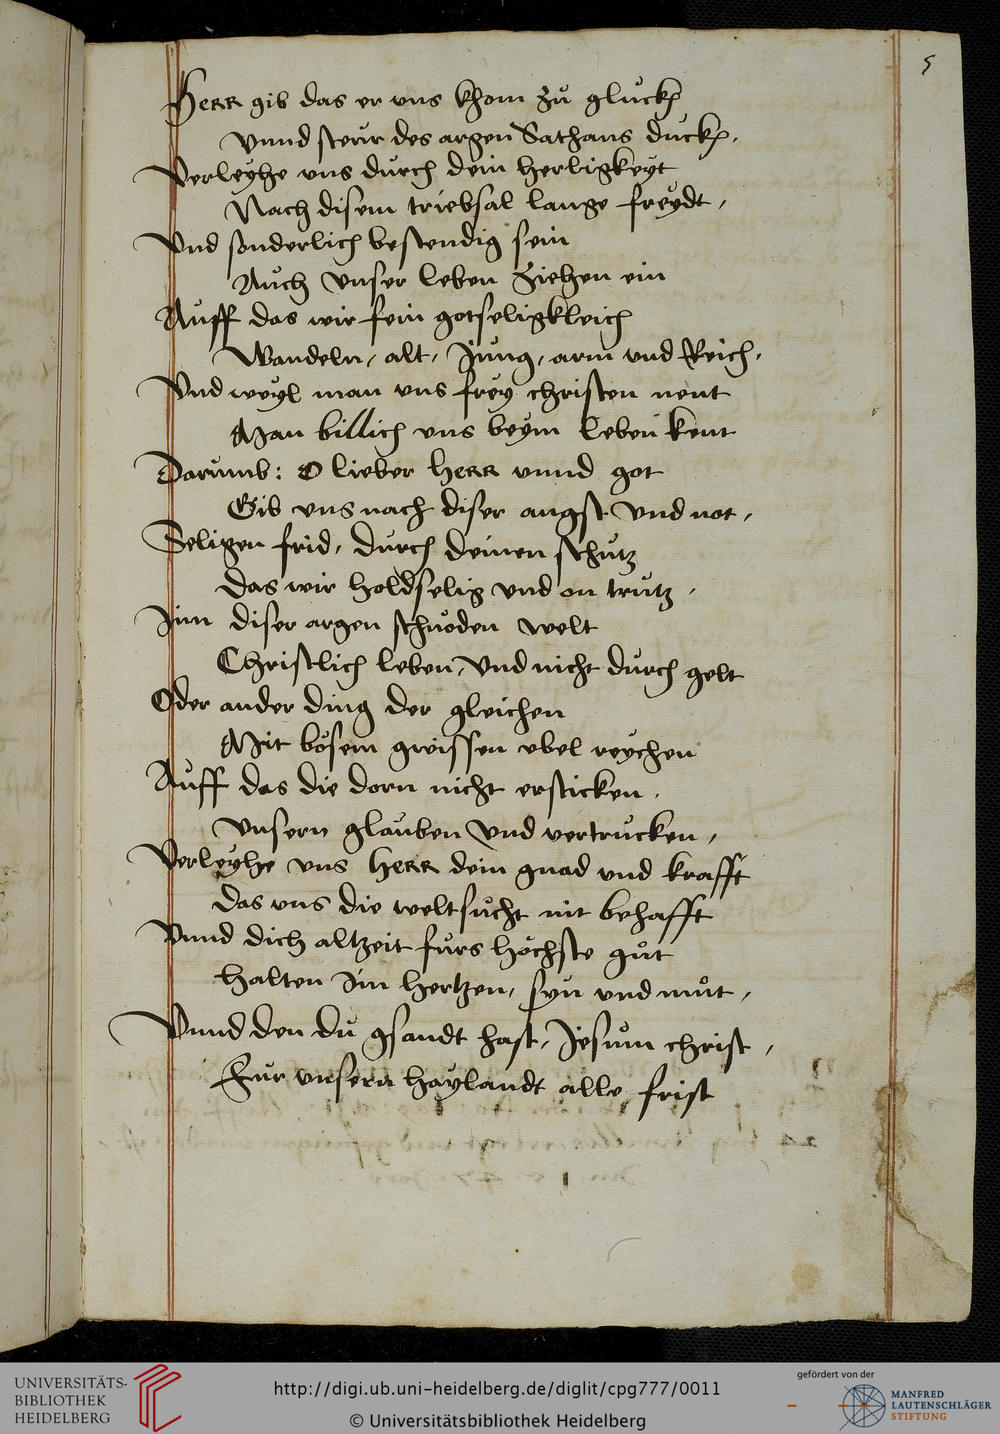 5
Herr gib das er uns khom zů gluckh
Vnnd steur des argen Sathans duckh,
Verleyhe uns durch dein herligkeyt
Nach disem triebsal lange freydt,
Vnd sonderlich bestendig sein
Auch Vnser leben Ziehen ein
Auff das wir fein gotseligkleich
Wandeln, alt, Jung, arm und Reich,
Vnd weyl man uns frey christen nent
Man billich uns beym leben kent
Darumb: O lieber Herr vnnd got
Gib uns nach diser angst Vnd not,
Seligen frid, durch deinen schutz
Das wir holdselig Vnd on trutz,
Jnn diser argen schnöden welt
Christlich leben, Vnd nicht durch gelt
Oder ander ding der gleichen
Mit bösem gwissen ubel reychen
Auff das die dorn nicht ersticken,
Vnsern glauben Vnd vertrucken,
Verleyhe uns Herr dein gnad und krafft
Das uns die weltsucht nit behafft
Vnnd dich altzeit fürs höchste gůt
halten Jm hertzen, syn und můt,
Vnnd den du gsandt hast, Jesum christ,
Für unsern haylandt alle frist
UNIVERSITÄTS-
BIBLIOTHEK
HEIDELBERG
http://digi.ub.uni-heidelberg.de/diglit/cpg777/0011
© Universitätsbibliothek Heidelberg
gefördert von der
MANFRED
LAUTENSCHLÄGER
STIFTUNG